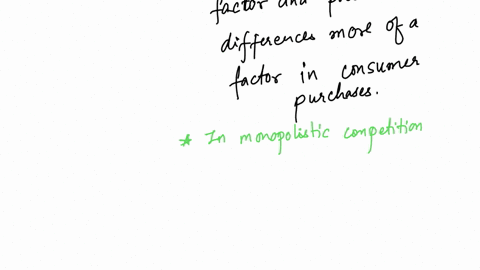 factor and
differences more of a
factor in consumer
purchases.
* In monopolistic competition